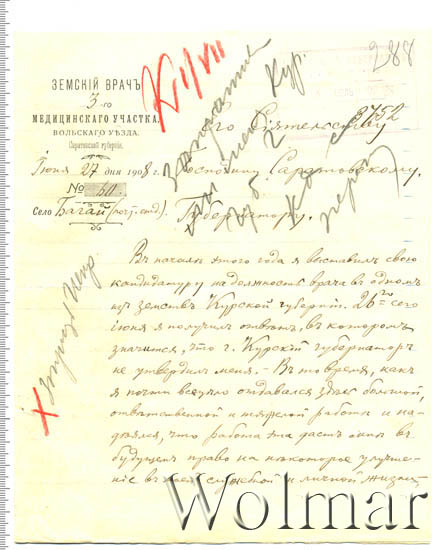 288
ЗЕМСКІЙ ВРАЧЪ
3-го
МЕДИЦИНСКАГО УЧАСТКА
ВОЛЬСКАГО УѢЗДА.
Саратовской губерніи.
Іюня 27 дня 1908 г.
№ 311
Село Багай
3752
Его Сіятельству
Господину Саратовскому
Губернатору.
Въ началѣ этого года я выставилъ свою
кандидатуру на должность врача въ одномъ
изъ земствъ Курской губерніи. 26го сего
іюня я получилъ отвѣтъ, въ которомъ
значится, что г. Курскій губернаторъ
не утвердилъ меня. – Въ то время, какъ
я почти всецѣло отдавался здѣсь большой,
отвѣтственной и тяжелой работѣ и на-
дѣялся, что работа эта дастъ мнѣ въ
будущемъ право на нѣкоторое улучше-
ніе въ моей служебной и личной жизни,
Wolmar